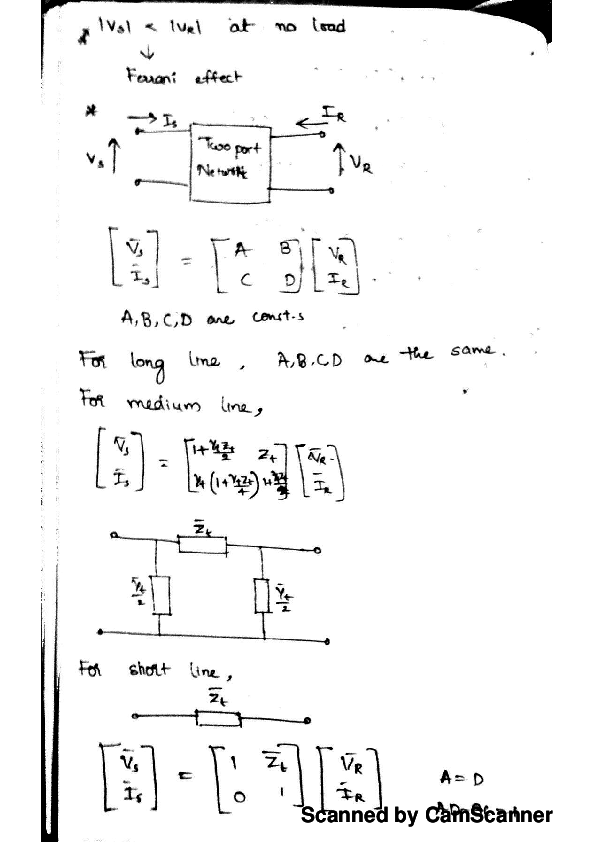 * |Vs| < |VR| at no load
↓
Ferrani effect
* → Is
← IR
Vs ↑
Two port
Network
↑ VR
[V̄s Īs] = [A B C D] [VR IR]
A, B, C, D are const.s
For long line, A, B, C, D are the same.
For medium line,
[V̄s Īs] = [1+YtZt/2 Zt Yt(1+YtZt/4) 1+YtZt/2] [V̄R ĪR]
Z̄t
Ȳt/2
Ȳt/2
For short line,
Z̄t
[V̄s Īs] = [1 Z̄t 0 1] [V̄R ĪR]
A = D
Scanned by CamScanner